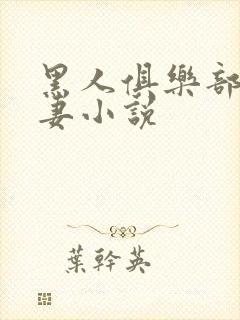 黑人俱樂部
妻小說
葉幹英